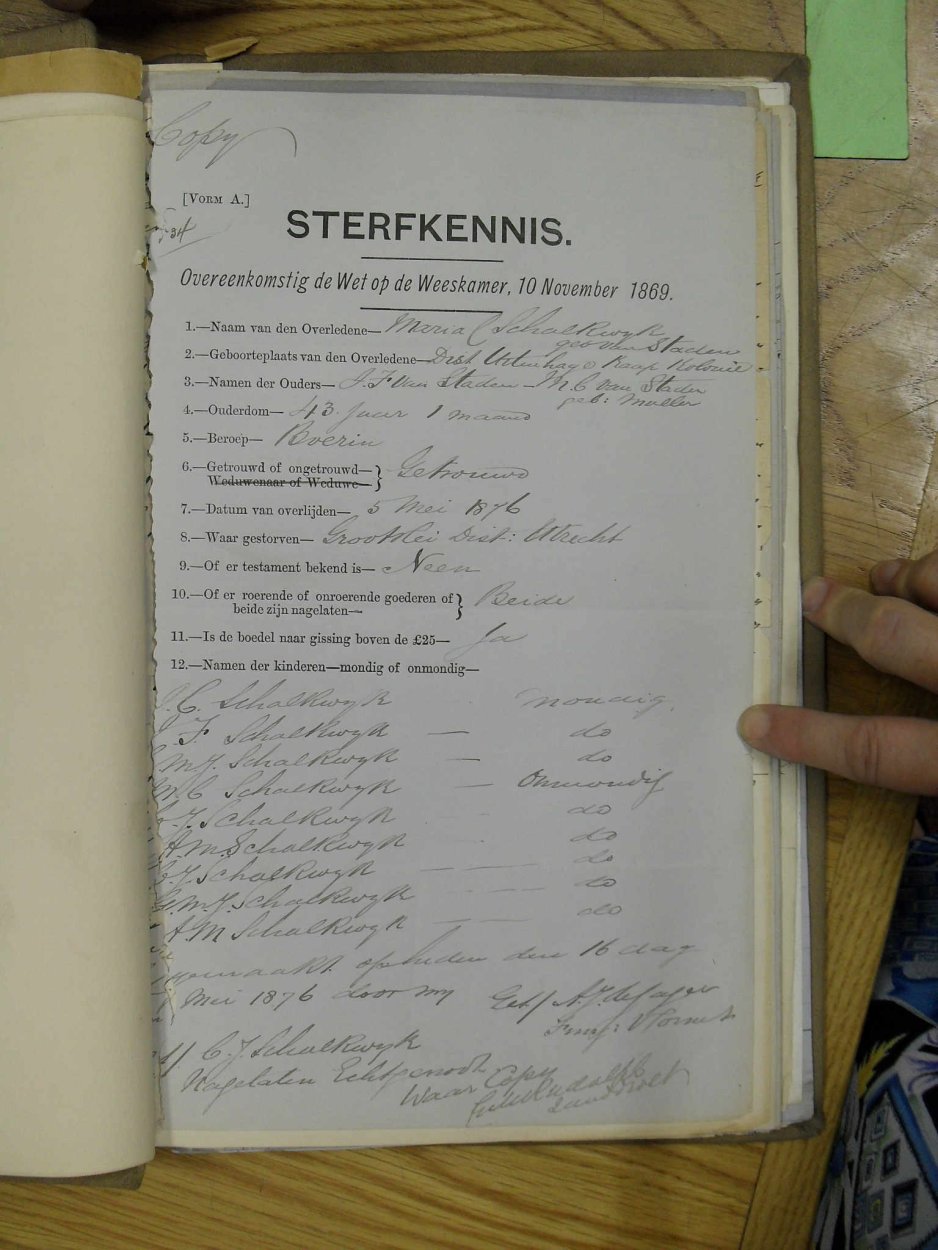 Copy
[Vorm A.]
34
STERFKENNIS.
Overeenkomstig de Wet op de Weeskamer, 10 November 1869.
1.—Naam van den Overledene— Maria C Schalkwyk
geb van Staden
2.—Geboorteplaats van den Overledene— Dist Uitenhage Kaap Kolonie
3.—Namen der Ouders— J. F van Staden - M. C van Staden
geb: Muller
4.—Ouderdom— 43 Jaar 1 maand
5.—Beroep— Boerin
6.—Getrouwd of ongetrouwd— } Getrouwd
Weduwenaar of Weduwe—
7.—Datum van overlijden— 5 Mei 1876
8.—Waar gestorven— Grootvlei Dist: Utrecht
9.—Of er testament bekend is— Neen
10.—Of er roerende of onroerende goederen of } Beide
beide zijn nagelaten—
11.—Is de boedel naar gissing boven de £25— Ja
12.—Namen der kinderen—mondig of onmondig—
C. Schalkwyk mondig
F Schalkwyk — do
M J. Schalkwyk — do
M. C Schalkwyk — Onmondig
J. Schalkwyk do
A. M. Schalkwyk do
J. Schalkwyk — do
G. M. J. Schalkwyk — do
A M Schalkwyk — do
gemaakt op heden den 16 dag
Mei 1876 door my Get/ A. J.
Fung:
C. J. Schalkwyk
Nagelaten Echtgenoot
Waar Copy